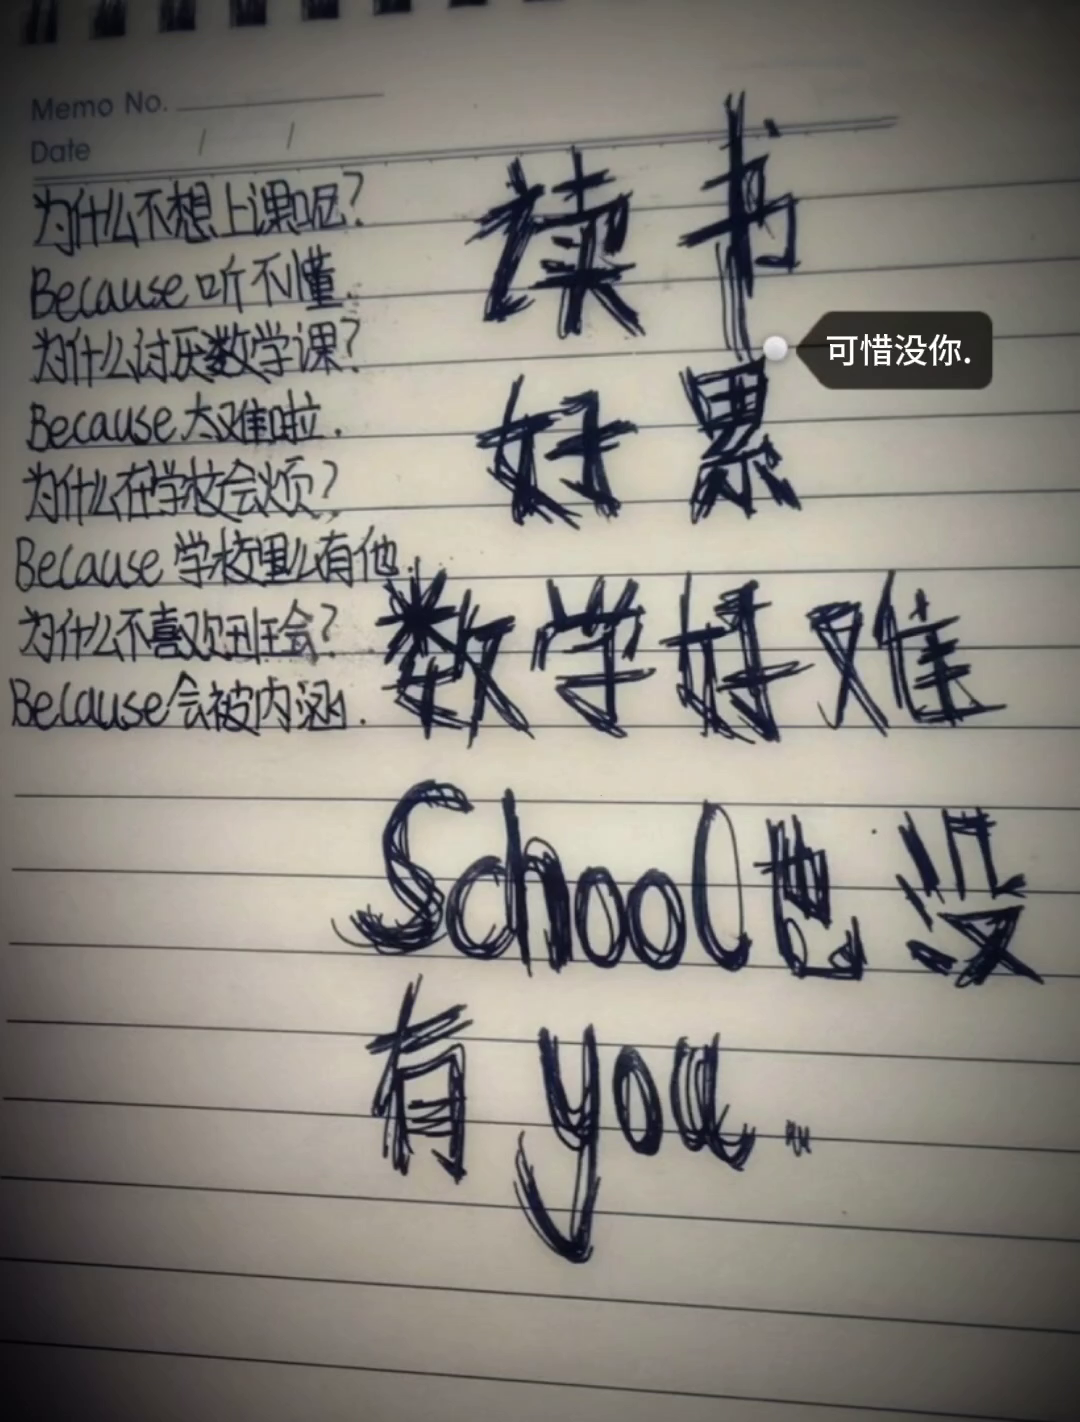 Memo No.
Date / /
为什么不想上课呢?
Because 听不懂.
为什么讨厌数学课?
Because 太难啦.
为什么在学校会烦?
Because 学校里么有他.
为什么不喜欢班会?
Because 会被内涵.
读书
可惜没你.
好累
数学好难
School也没
有you.